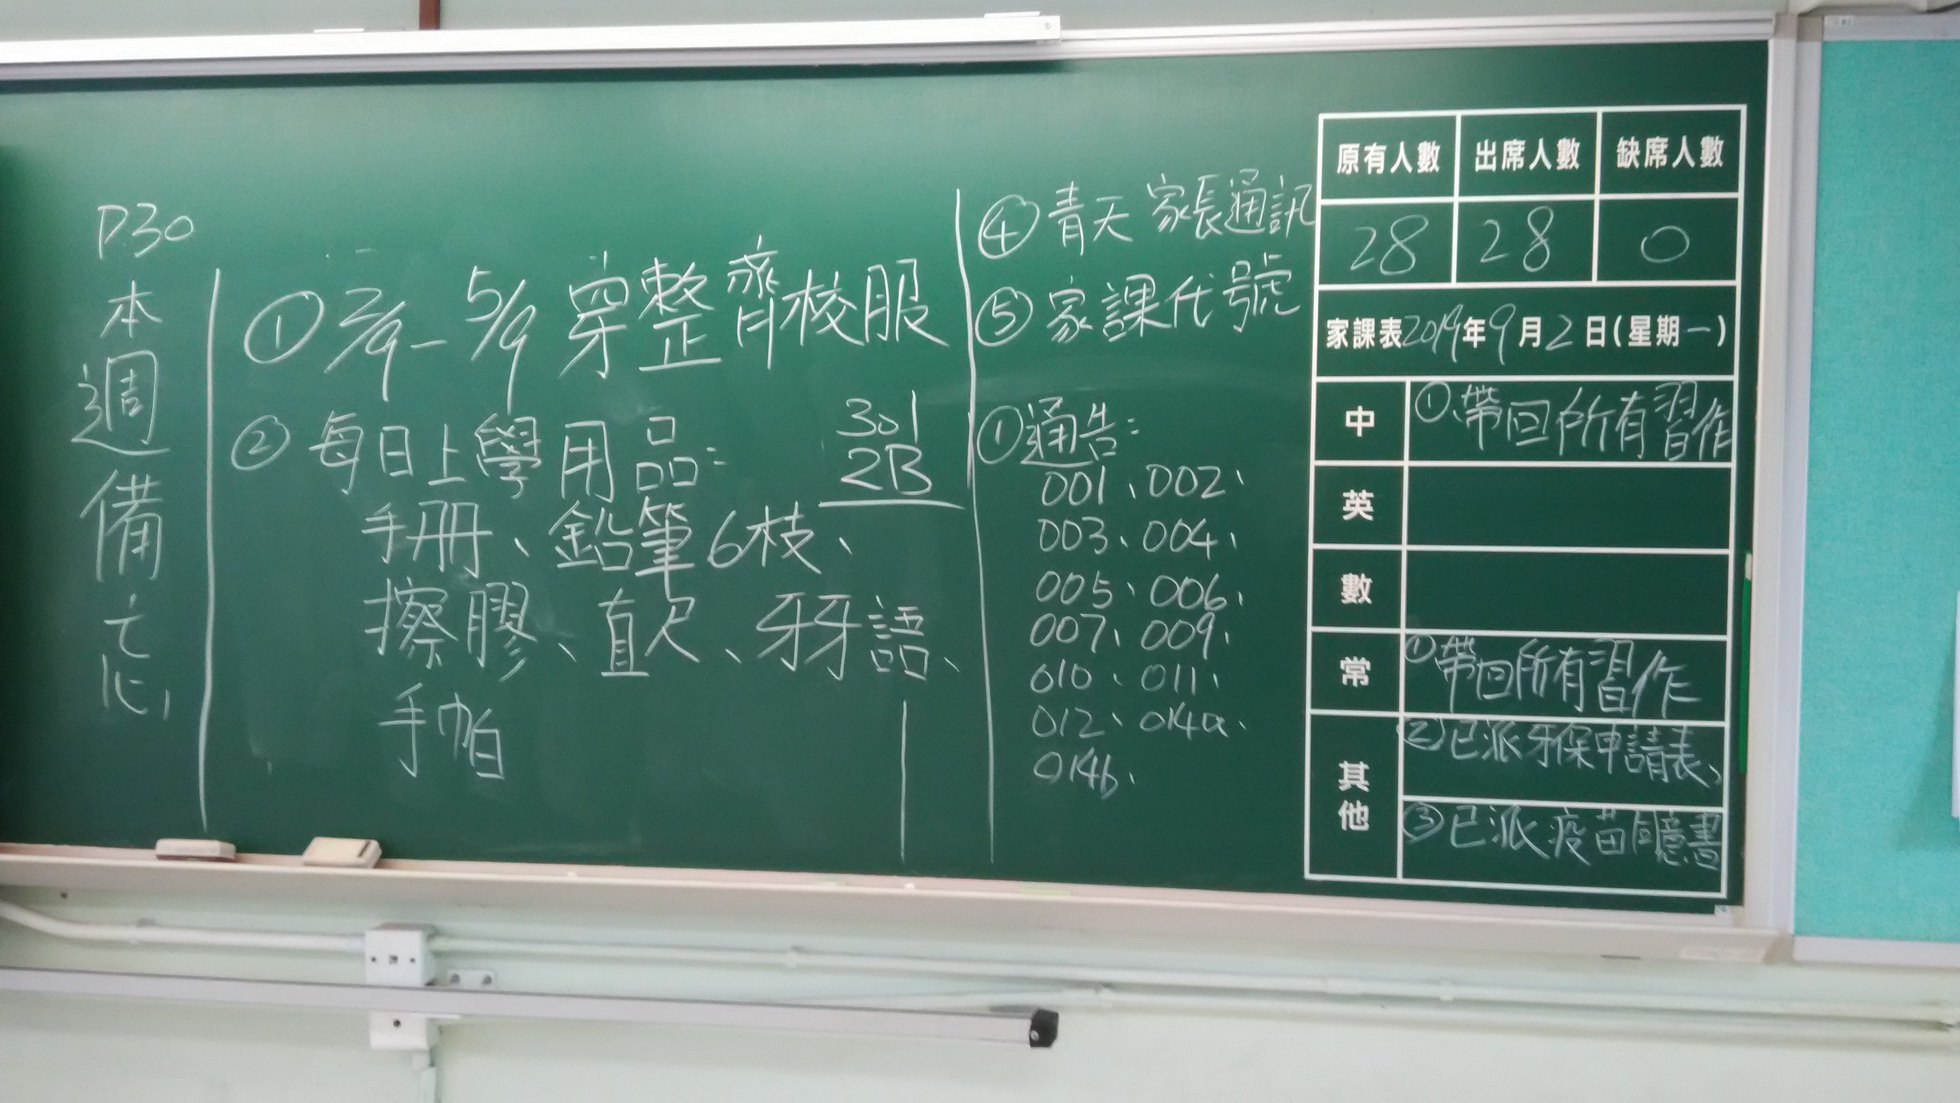 P.30
本週備忘
① 2/9 - 5/9 穿整齊校服
② 每日上學用品：
301
2B
手冊、鉛筆6枝、
擦膠、直尺、牙牙語、
手帕
④ 青天 家長通訊
⑤ 家課代號
① 通告：
001、002、
003、004、
005、006、
007、009、
010、011、
012、014a、
014b、
原有人數 出席人數 缺席人數
28 28 0
家課表2019年9月2日(星期一)
中 ①帶回所有習作
英
數
常 ①帶回所有習作
其他 ②已派牙保申請表、
③已派疫苗同意書